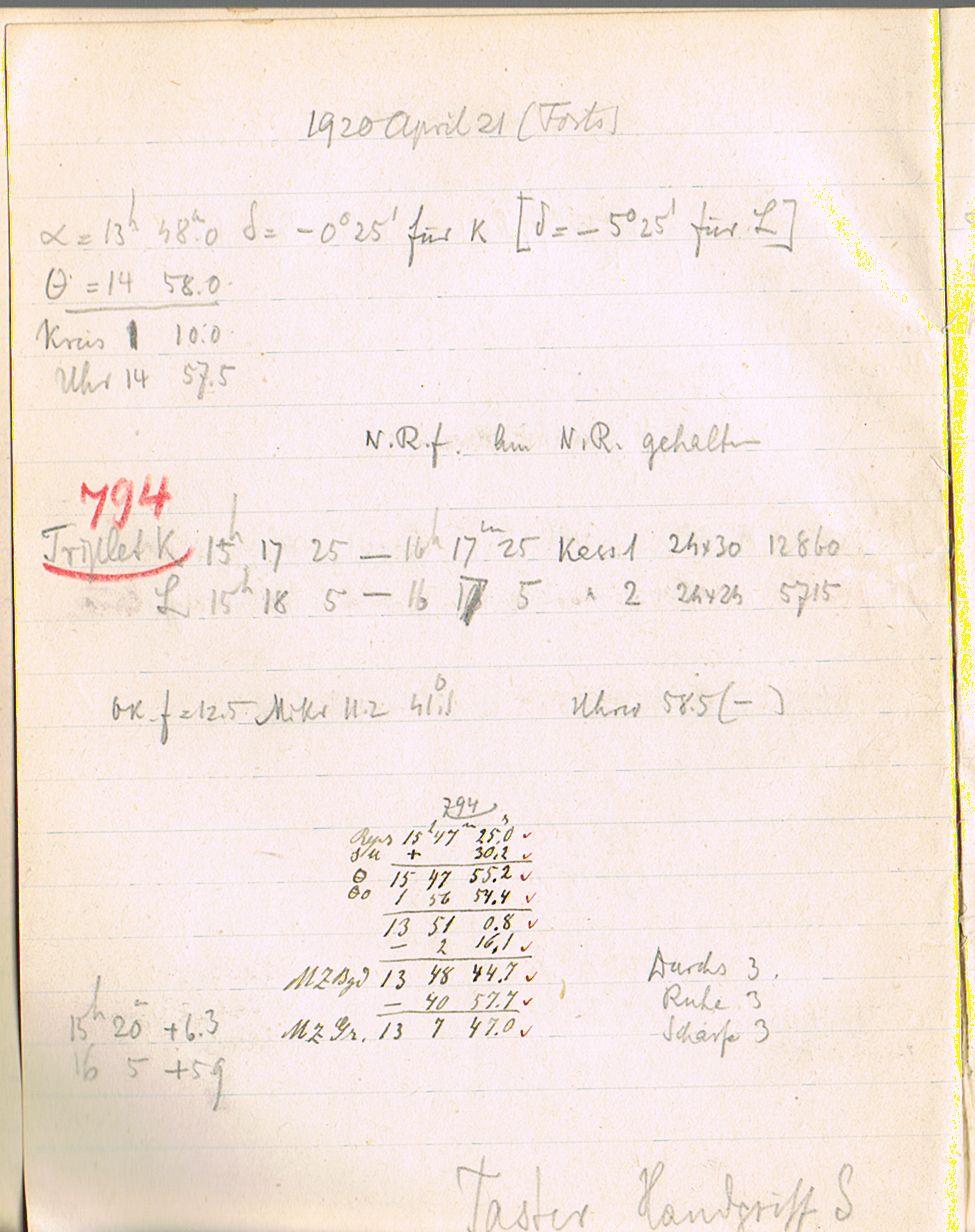 1920 April 21 (Forts)
α = 13h 48m0 δ = -0° 25' für K [δ = - 5° 25' für L]
θ = 14 58.0
Kreis 1 10.0
Uhr 14 57.5
N.R.f. N.R. gehalten
794
Triplet K 15h 17 25 — 16h 17m 25 Kass 1 24x30 12860
L 15h 18 5 — 16 18 5 " 2 24x24 5715
OK. f = 12.5 Mikr 11.2 41°.1 Uhren 58.5 (-)
794
15h 47m 25.0s
+ 30.2
θ 15 47 55.2
θ0 1 56 54.4
13 51 0.8
- 2 16.1
MZ Bgd 13 48 44.7
- 40 57.7
MZ Gr. 13 7 47.0
Durchs 3.
Ruhe 3
Schärfe 3
15h 20m +6.3
16 5 +5.9
Taster Handgriff S